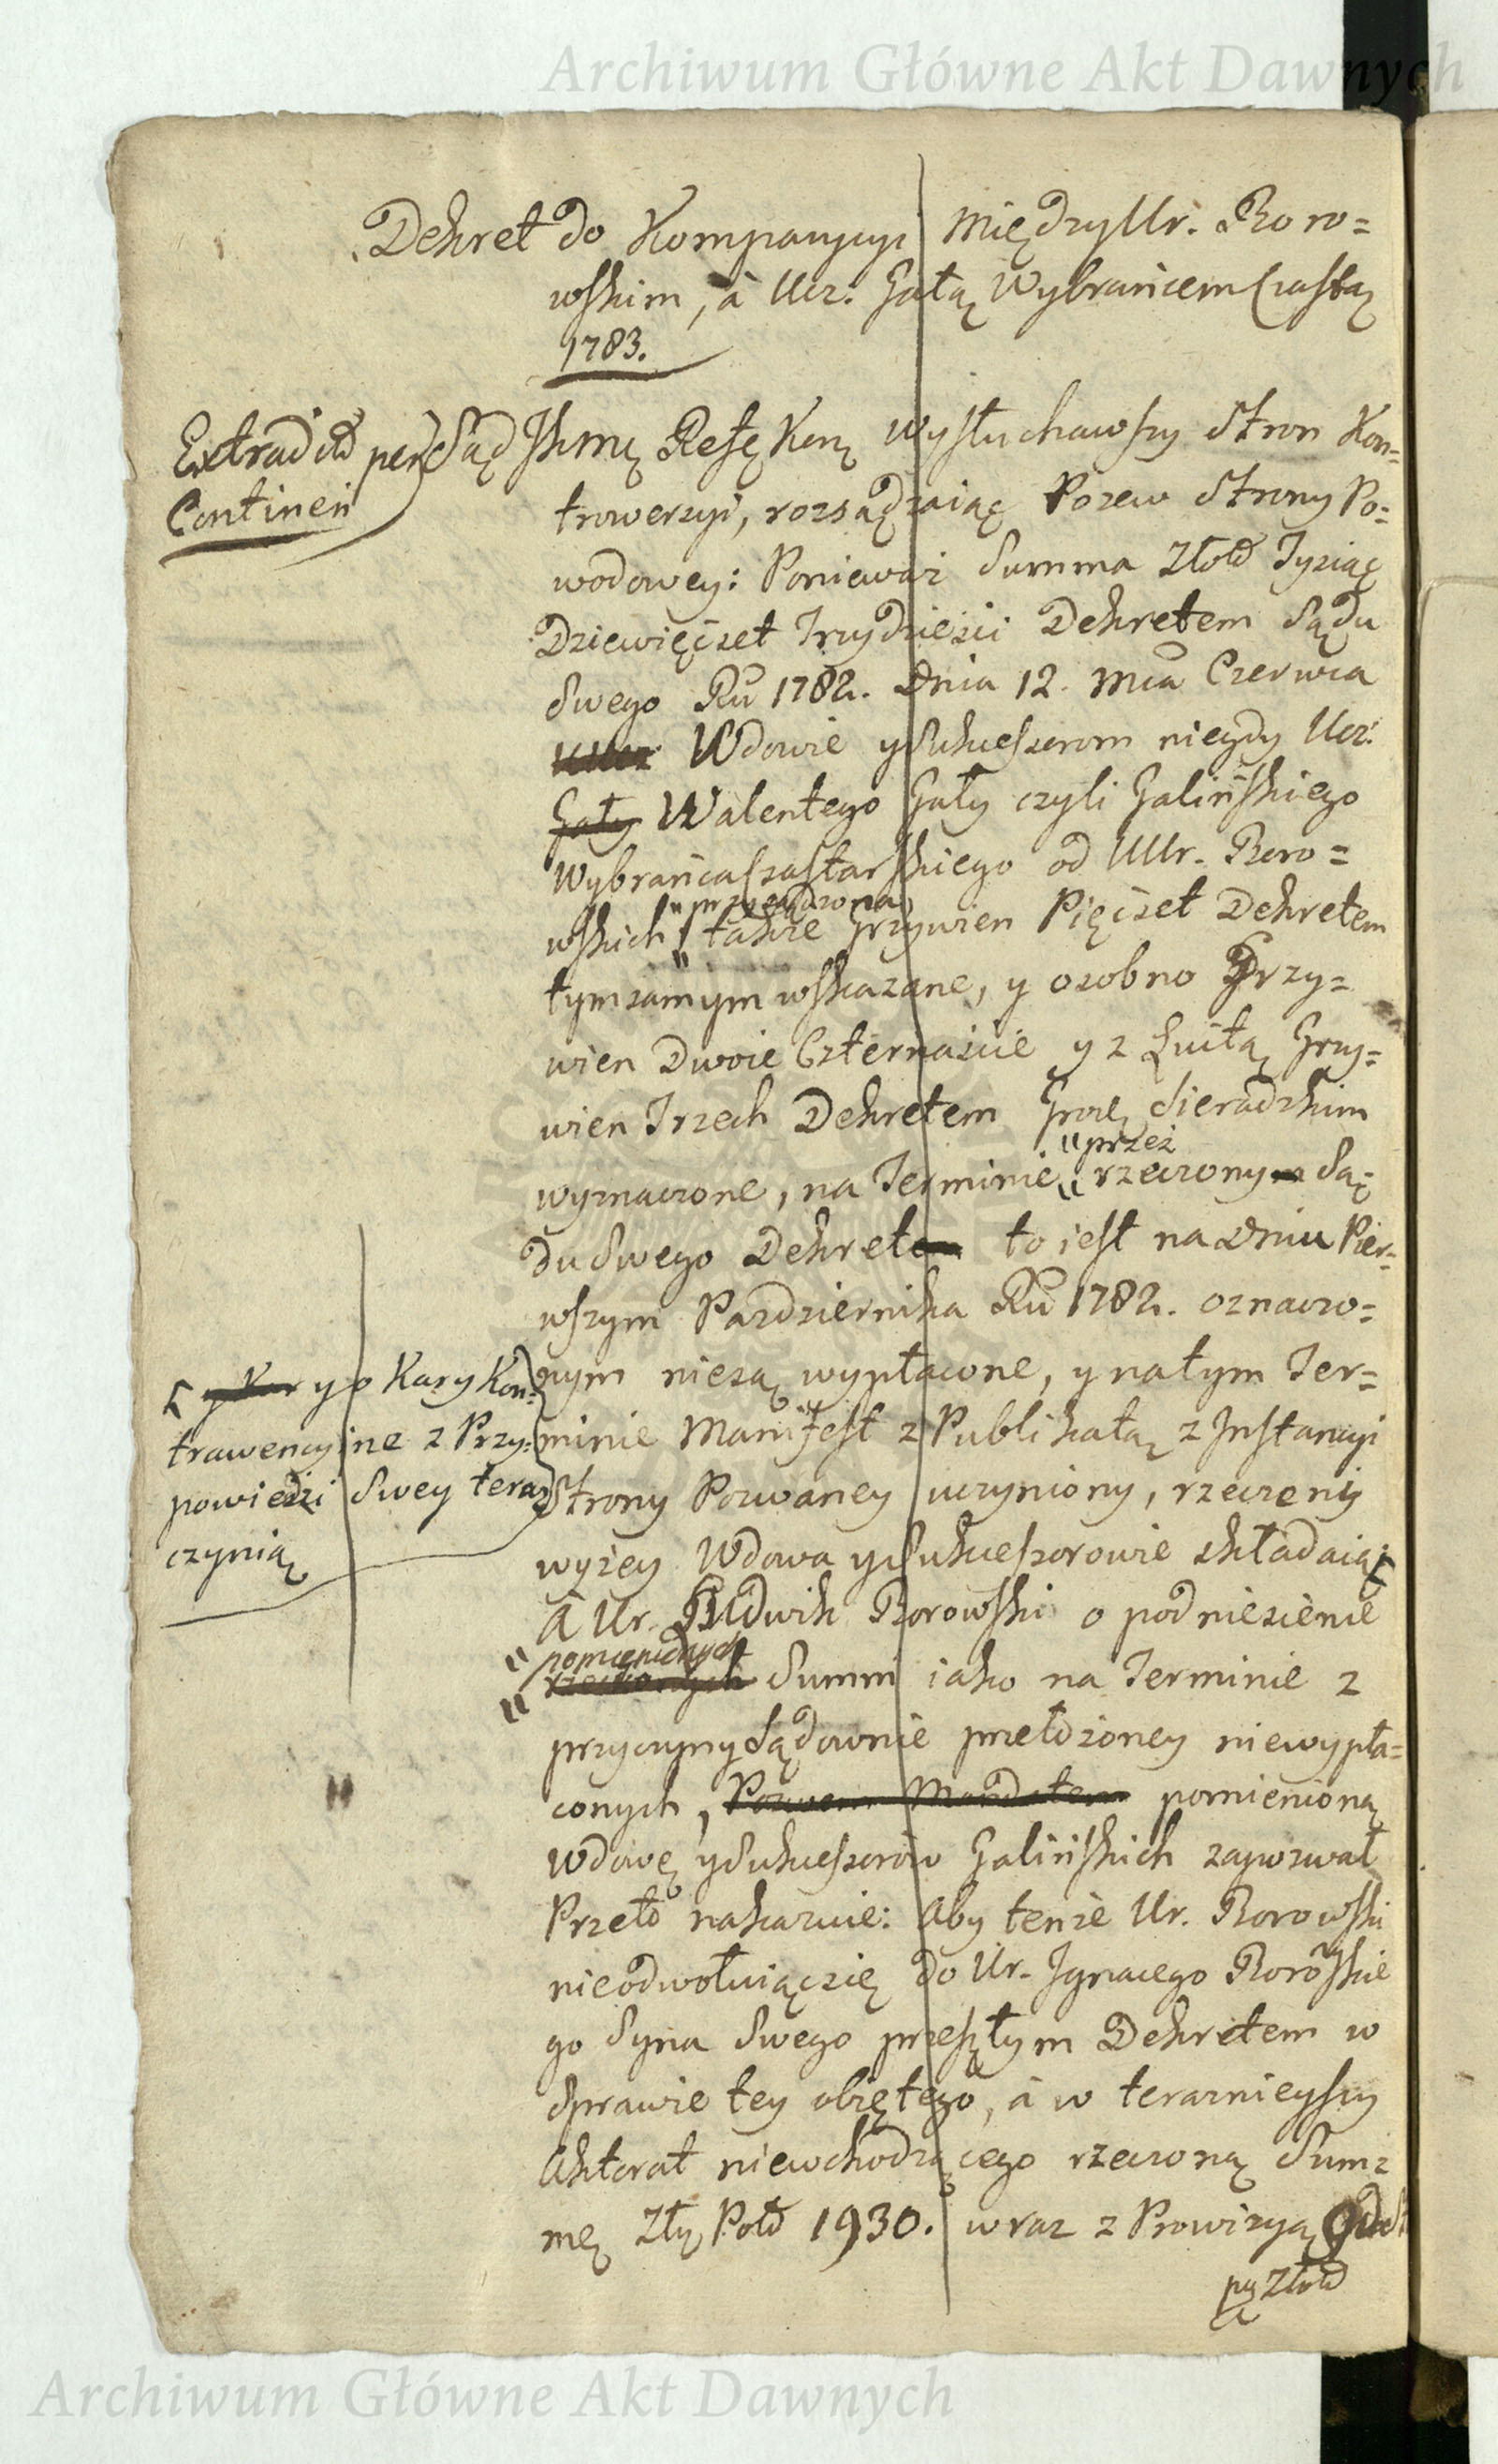 Archiwum Główne Akt Dawnych
Dekret do Kompanycyi między Ur. Boro=
wskim, à Ucz. Gałą Wybrańcem Czastą
1783.
Extradit per
Continen
Sąd JKmę Refę Korą wysłuchawszy Stron Kon=
trowersyi, rozsądzaiąc Pozew Strony Po=
wodowey: Ponieważ Summa Złotd Tysiąc
Dziewięćset Trzydzieści Dekretem Sądu
Swego Ru 1782. Dnia 12. Mca Czerwca
Wdowie y Sukcessorom niegdy Ucz:
Gały Walentego Gały czyli Galińskiego
Wybrańca Czastarskiego od UUr. Boro=
"przysądzona
wskich " także Grzywien Pięćset Dekretem
tymsamym wskazane, y osobno Grzy=
wien Dwoie Czternaście y z Luitą Grzy=
wien Trzech Dekretem Grodz Sieradzkim
"przez
wyznaczone, na Terminie " rzeczonym Są=
du Swego Dekretem to iest na Dniu Pier=
wszym Pazdziernika Ru 1782. oznaczo=
nym niesą wypłacone, y natym Ter=
minie Manifest z Publikatą z Instancyi
Strony Pozwaney uczyniony, rzeczeni
wyżey Wdowa y Sukcessorowie składaią
y o Kary Kon=
trawencyine z Przy=
powiedzi Swey teraz
czynią
à Ur. Ludwik Borowski o podniesienie
"pomienionych
" rzeczonych Summ iako na Terminie z
przyczyny Sądownie przełożoney niewypła=
conych, Pozwem Mandatem pomienioną
Wdowę y Sukcessorów Galińskich zapozwał
Przeto nakazuie: Aby tenże Ur. Borowski
nieodwołuiącsię do Ur. Ignacego Borõskie
go Syna Swego przeszłym Dekretem w
Sprawie tey obiętego, à w teraznieyszy
Aktorat niewchodzącego rzeczoną Sum=
mę Złţ Pold 1930. wraz z Prowizyą
pą Złotd
Archiwum Główne Akt Dawnych